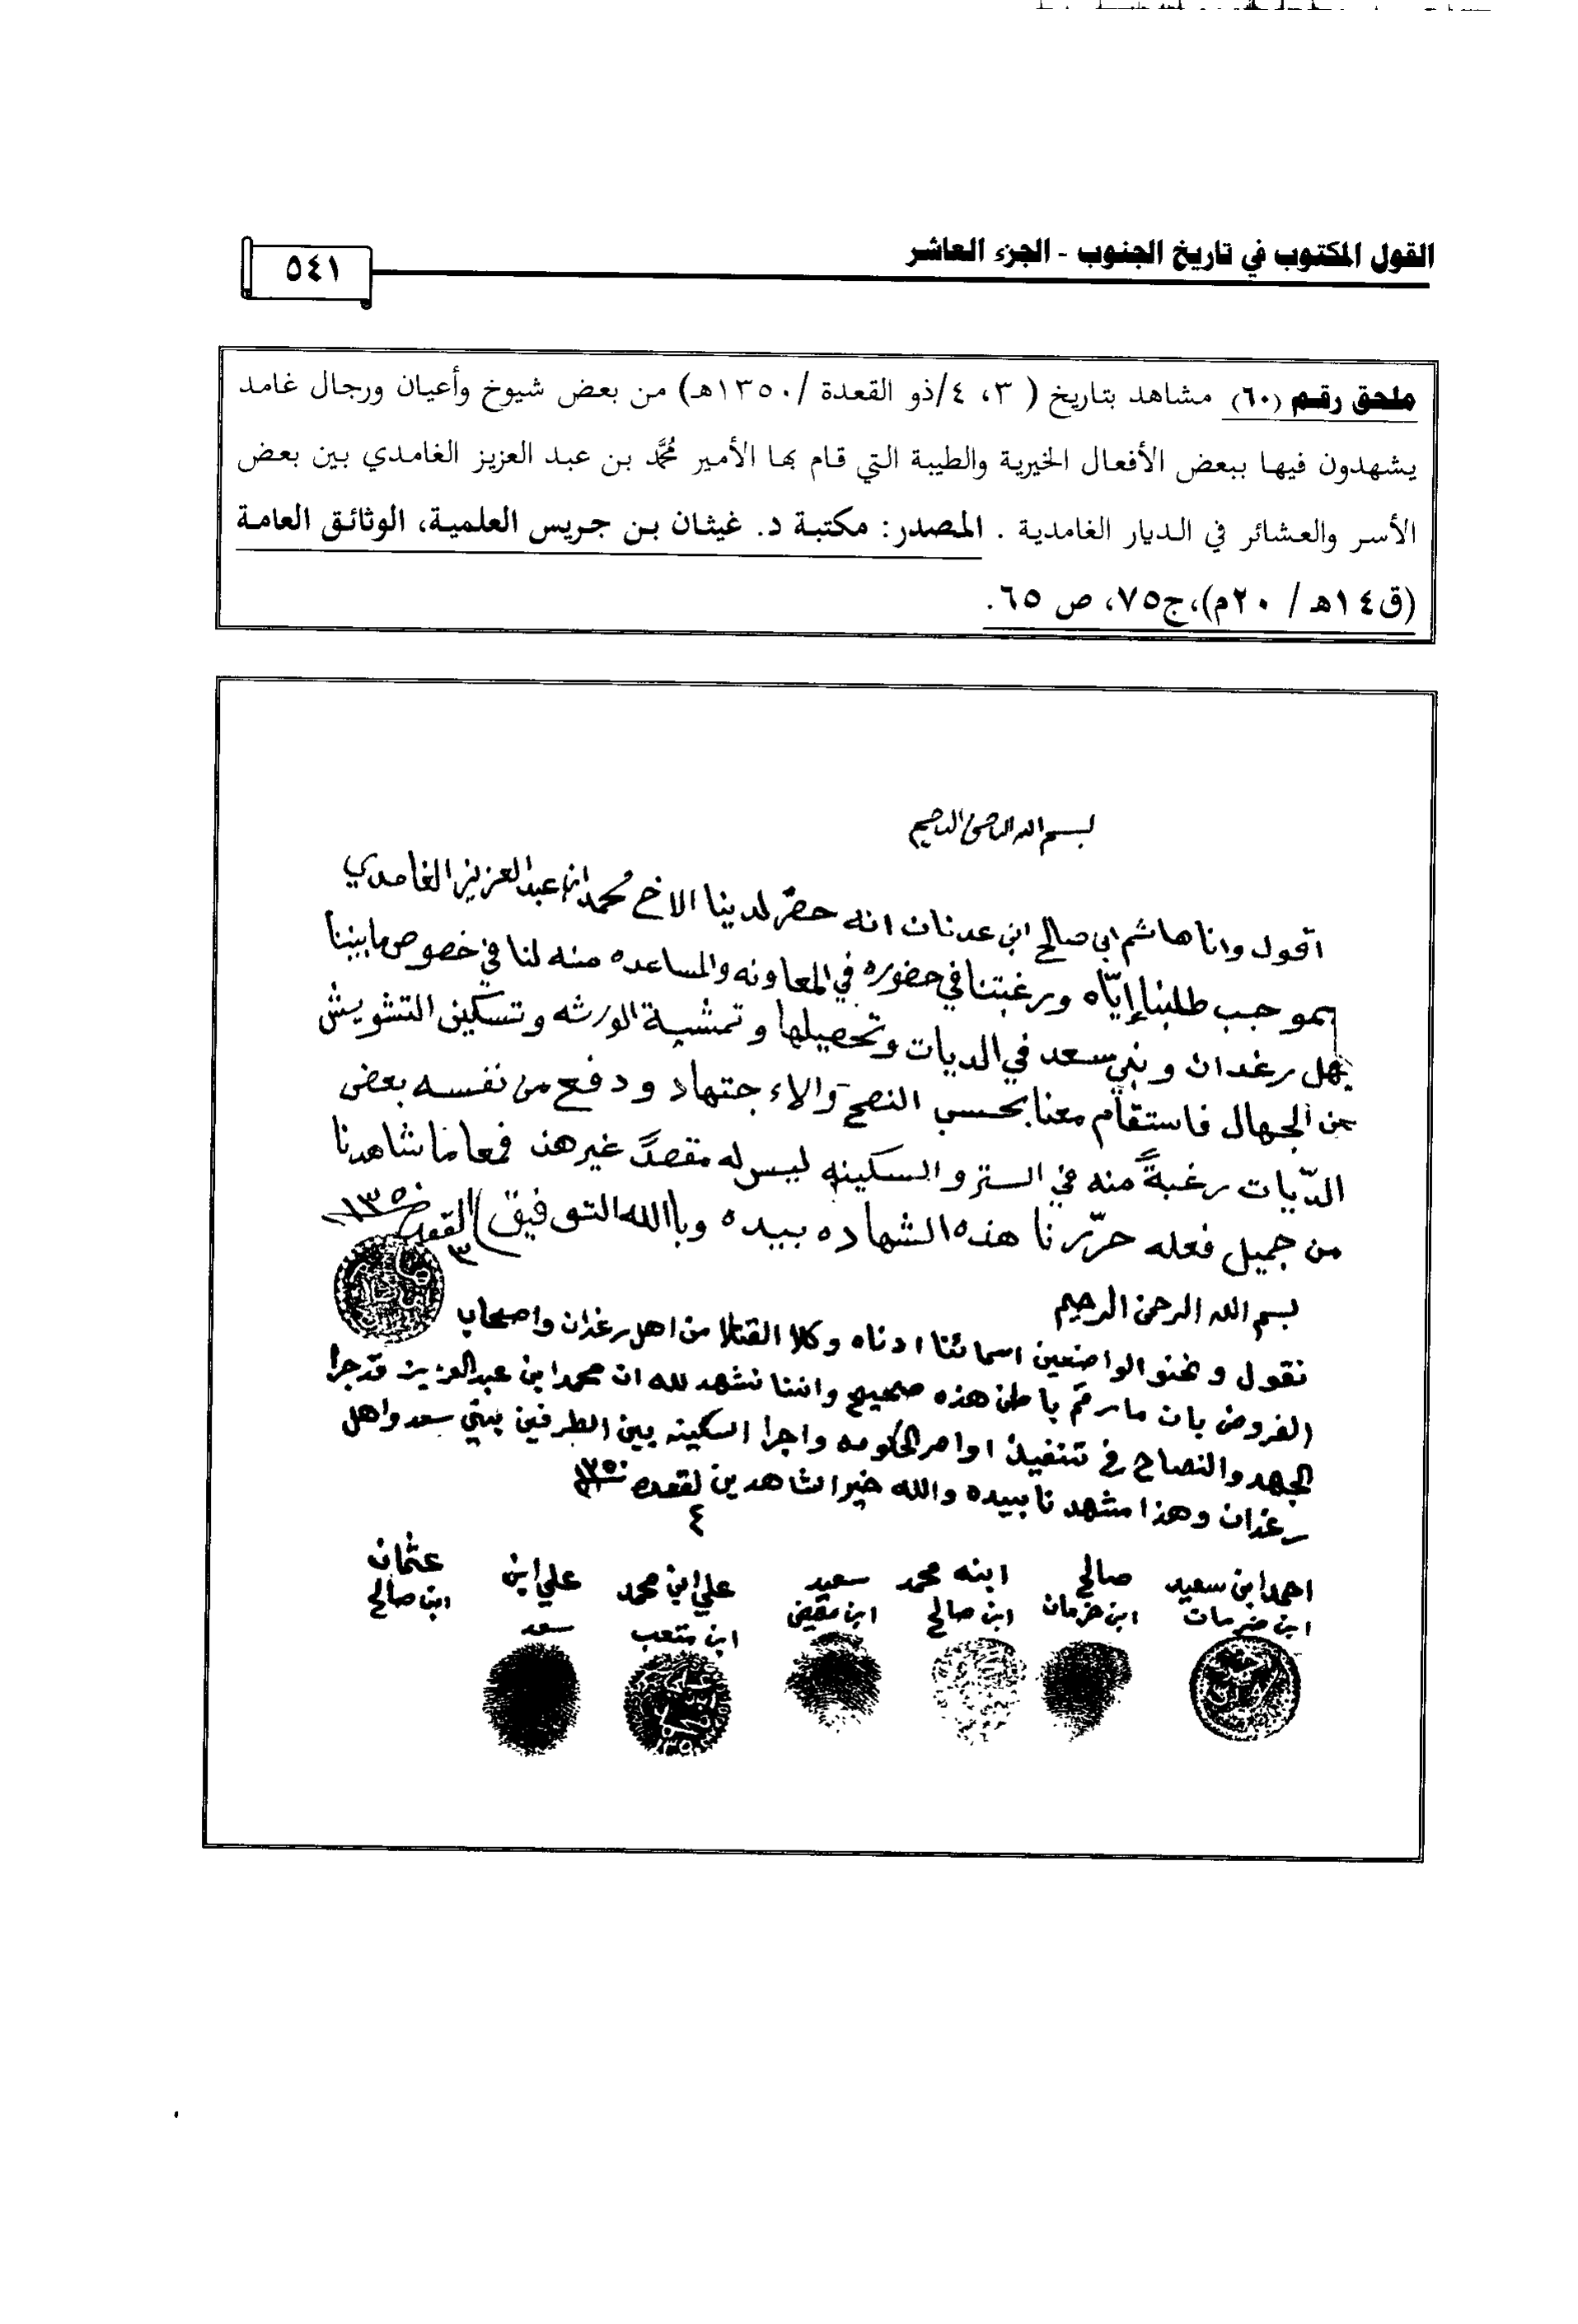 القول المكتوب في تاريخ الجنوب - الجزء العاشر
٥٤١
ملحق رقم (٦٠) مشاهد بتاريخ ( ٣، ٤/ذو القعدة /١٣٥٠هـ) من بعض شيوخ وأعيان ورجال غامد
يشهدون فيها ببعض الأفعال الخيرية والطيبة التي قام بها الأمير مُحَّد بن عبد العزيز الغامدي بين بعض
الأسر والعشائر في الديار الغامدية . المصدر: مكتبة د. غيثان بن جريس العلمية، الوثائق العامة
(ق١٤هـ / ٢٠م)،ج٧٥، ص ٦٥.
بسم الله الرحمن الرحيم
اقول وانا هاشم ابن صالح ابن عدنان انه حضر لدينا الاخ محمد ابن عبد العزيز الغامدي
بموجب طلبنا إيّاه ورغبتنا في حضوره في المعاونه والمساعده منه لنا في خصوص ما بيننا
اهل رغدان وبني سعد في الديات وتحصيلها وتمشية الورثه وتسكين التشويش
عن الجهال فاستقام معنا بحسب النصح والاءجتهاد ودفع من نفسه بعض
الدّيات رغبةً منه في الستر والسكينه ليس له مقصدً غير هذ فمعاما شاهدنا
من جميل فعله حرّرنا هذه الشهاده بيده وباالله التوفيق القعده ١٣٥٠
٣
بسم الله الرحمن الرحيم
نقول ونحنو الواضعين اسمائنا ادناه وكلا القتلا من اهل رغدان واصحاب
الفروض بان مارقم باطن هذه صحيح واننا نشهد لله ان محمد ابن عبد العزيز قد جرا
الجهد والنصاح في تنفيذ اوامر الحكومه واجرا السكينه بين الطرفين ببني سعد واهل
رغدان وهذا مشهدنا بيده والله خير الشاهدين لقعده ١٣٥٠
٤
احمد ابن سعيد صالح ابنه محمد سعيد علي ابن محمد علي ابن عثمان
ابن خزمان ابن صالح ابن متعب سعد ابن صالح